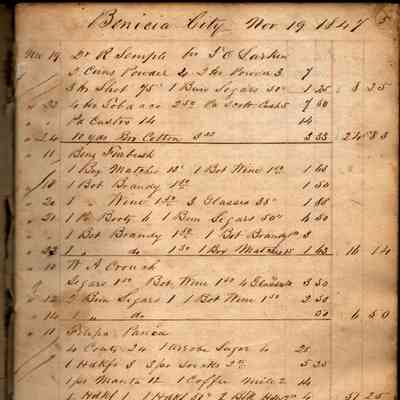 Benicia City Nov 19 1847 5
Nov 19 Dr R Semple to T O Larkin
2 Cans Powder 4 2 lbs Powder 3 7
3 lbs Shot 75 1 Bun Segars 50 1 25 8 25
" 23 4 lbs Tobacco 2 50 Pa 7 50
" " Pa Castor 14 14
" 24 10 yds Bro Cotton 3 33 3 33 24 83
" 11 Benj
1 Box Matches 12 1 Bot Wine 1 50 1 63
" 18 1 Bot Brandy 1 50 1 50
" 20 1 " Wine 1 50 3 Glasses 38 1 88
" 21 1 Pr Boots 4 1 Bun Segars 50 4 50
" " 1 Bot Brandy 1 50 1 Bot Brandy 3
" 23 1 " do 1 50 1 Box Matches 1 63 16 14
" 10 W A
Segars 1 00 Bot Wine 1 50 4 Glasses 3 50
" 12 2 Bun Segars 1 1 Bot Wine 1 50 2 50
" 14 1 " do 50 6 50
" 11 Felipa
4 24 1 arrobe Sugar 4 28
1 Hdkfs 3 3 prs Socks 5 25
1 ps Manta 12 1 Coffee Mill 2 14
1 Hdkf 50 2 4 51 25